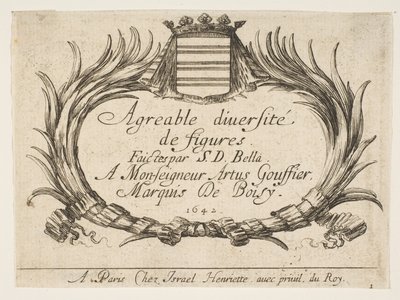 Agreable diuersité
de figures.
Faictes par S. D. Bella
A Monseigneur Artus Gouffier,
Marquis De Boisy.
1642.
A Paris Chez Israel Henriette, auec priuil. du Roy.
1